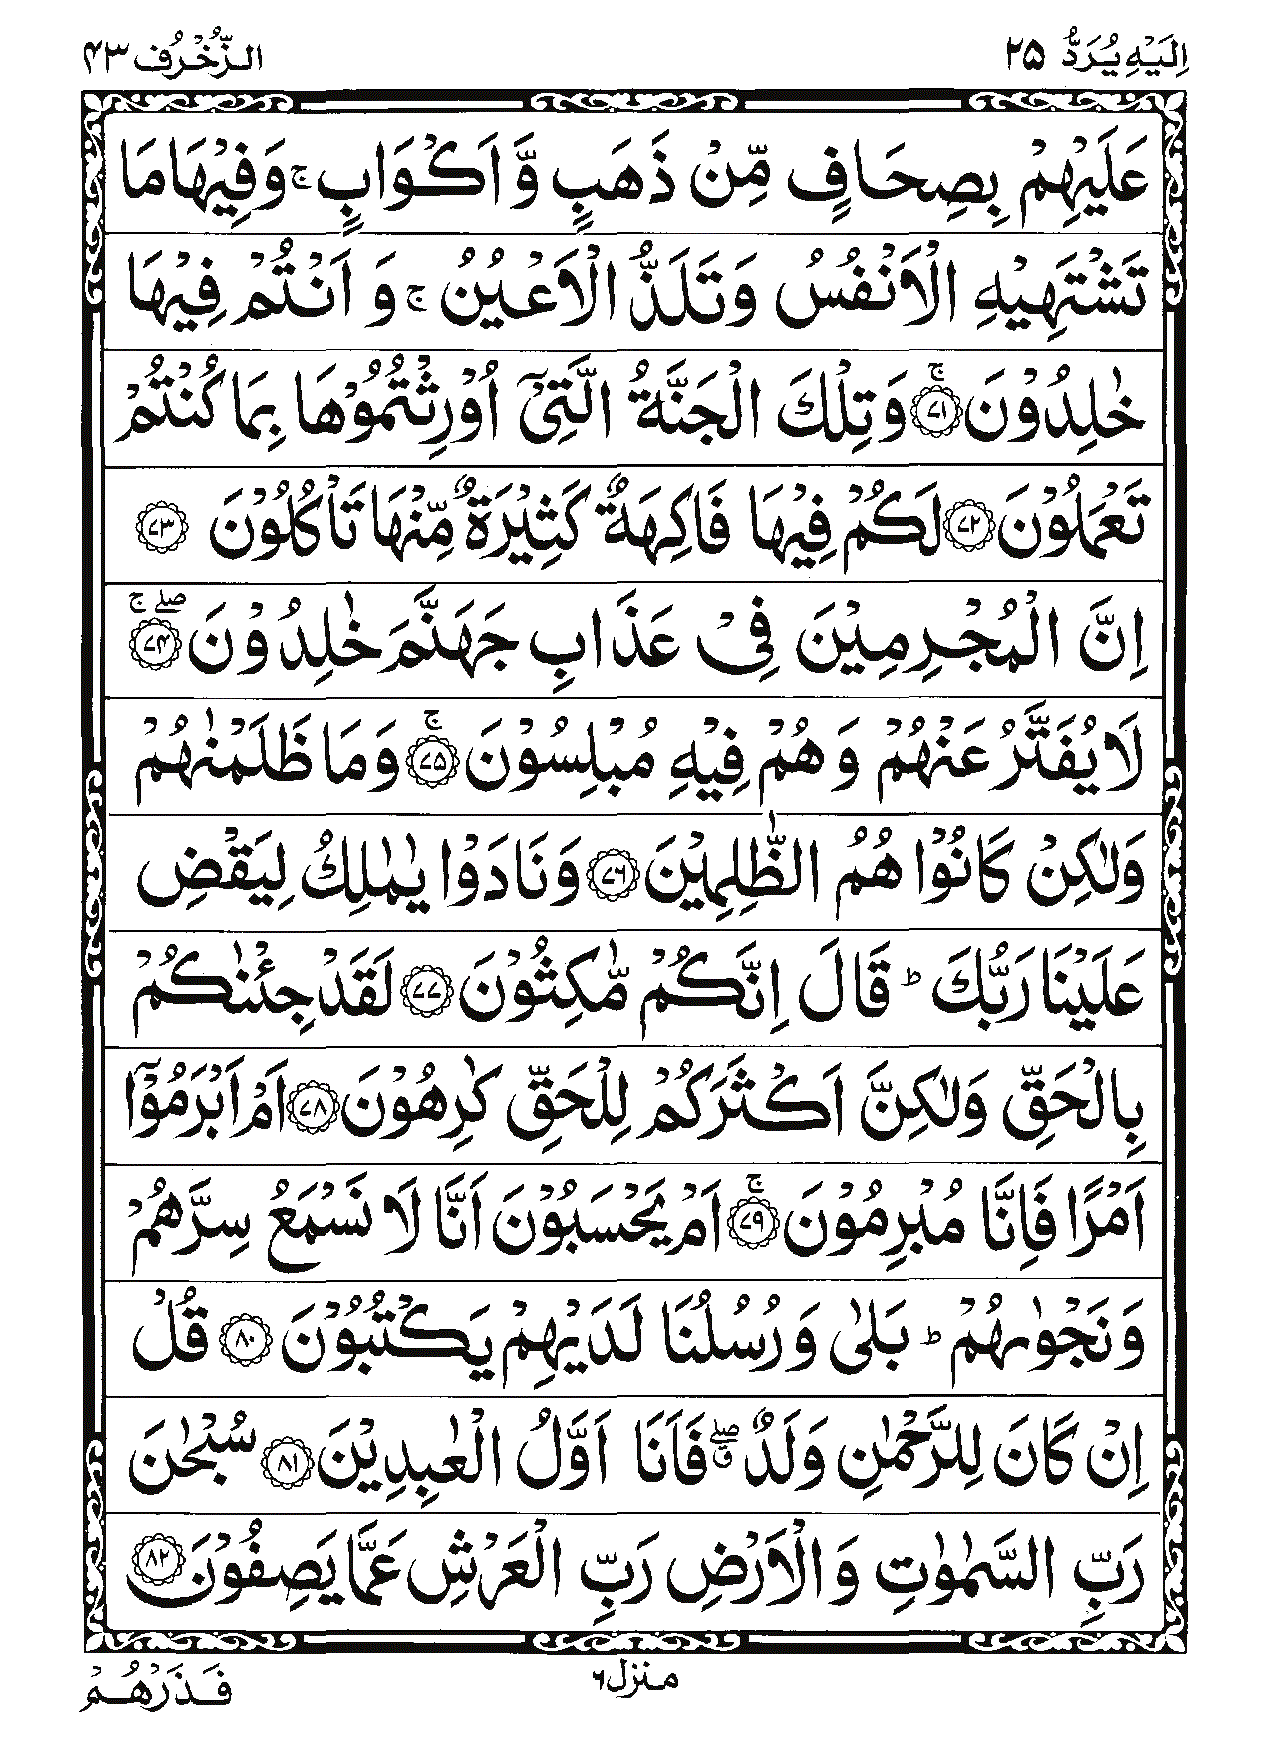 اِلَيْهِ يُرَدُّ ٢٥ الزُّخْرُف ٤٣
عَلَيْهِمْ بِصِحَافٍ مِّنْ ذَهَبٍ وَّ اَكْوَابٍ ۚ وَفِيْهَا مَا
تَشْتَهِيْهِ الْاَنْفُسُ وَ تَلَذُّ الْاَعْيُنُ ۚ وَ اَنْتُمْ فِيْهَا
خٰلِدُوْنَ ۚ ﴿٧١﴾ وَتِلْكَ الْجَنَّةُ الَّتِيْۤ اُوْرِثْتُمُوْهَا بِمَا كُنْتُمْ
تَعْمَلُوْنَ ﴿٧٢﴾ لَكُمْ فِيْهَا فَاكِهَةٌ كَثِيْرَةٌ مِّنْهَا تَاْكُلُوْنَ ﴿٧٣﴾
اِنَّ الْمُجْرِمِيْنَ فِيْ عَذَابِ جَهَنَّمَ خٰلِدُوْنَ ۖۚ ﴿٧٤﴾
لَا يُفَتَّرُ عَنْهُمْ وَ هُمْ فِيْهِ مُبْلِسُوْنَ ۚ ﴿٧٥﴾ وَمَا ظَلَمْنٰهُمْ
وَلٰكِنْ كَانُوْا هُمُ الظّٰلِمِيْنَ ﴿٧٦﴾ وَنَادَوْا يٰمٰلِكُ لِيَقْضِ
عَلَيْنَا رَبُّكَ ؕ قَالَ اِنَّكُمْ مّٰكِثُوْنَ ﴿٧٧﴾ لَقَدْ جِئْنٰكُمْ
بِالْحَقِّ وَلٰكِنَّ اَكْثَرَكُمْ لِلْحَقِّ كٰرِهُوْنَ ﴿٧٨﴾ اَمْ اَبْرَمُوْۤا
اَمْرًا فَاِنَّا مُبْرِمُوْنَ ۚ ﴿٧٩﴾ اَمْ يَحْسَبُوْنَ اَنَّا لَا نَسْمَعُ سِرَّهُمْ
وَنَجْوٰىهُمْ ؕ بَلٰى وَ رُسُلُنَا لَدَيْهِمْ يَكْتُبُوْنَ ﴿٨٠﴾ قُلْ
اِنْ كَانَ لِلرَّحْمٰنِ وَلَدٌ ۖ فَاَنَا اَوَّلُ الْعٰبِدِيْنَ ﴿٨١﴾ سُبْحٰنَ
رَبِّ السَّمٰوٰتِ وَ الْاَرْضِ رَبِّ الْعَرْشِ عَمَّا يَصِفُوْنَ ﴿٨٢﴾
منزل ٦
فَذَرْهُمْ